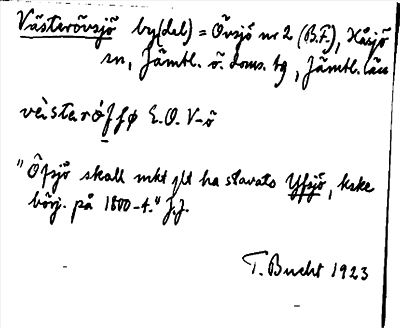 Västerövsjö by(del) = Övsjö nr 2 (B.F.), Håsjö
sn, Jämtl. ö. doms. tg, Jämtl. län
västerófʃø E.O. V-ö
"Öfsjö skall mkt glt ha stavats Yfsjö, kske
börj. på 1800-t." J.J.
T. Bucht 1923